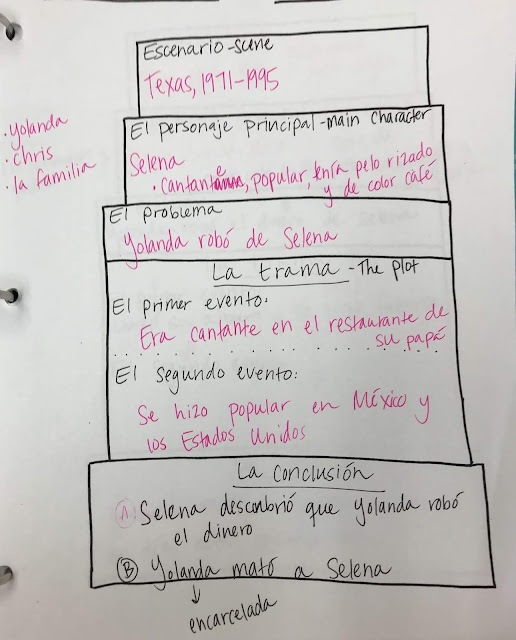 Escenario-scene
Texas, 1971-1995
• Yolanda
• Chris
• la familia
El personaje principal-main character
Selena
• cantante, popular, tenía pelo rizado
y de color café
El problema
Yolanda robó de Selena
La trama - The plot
El primer evento:
Era cantante en el restaurante de
su papá
El segundo evento:
Se hizo popular en México y
los Estados Unidos
La conclusión
A Selena descubrió que Yolanda robó
el dinero
B Yolanda mató a Selena
encarcelada